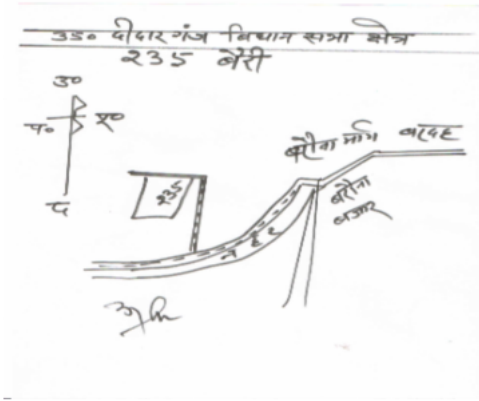 350 दीदारगंज विधान सभा क्षेत्र
235 बैरी
उ०
प० पू०
द
बरौना मार्ग बरदह
235
बरौना
बजार
नहर